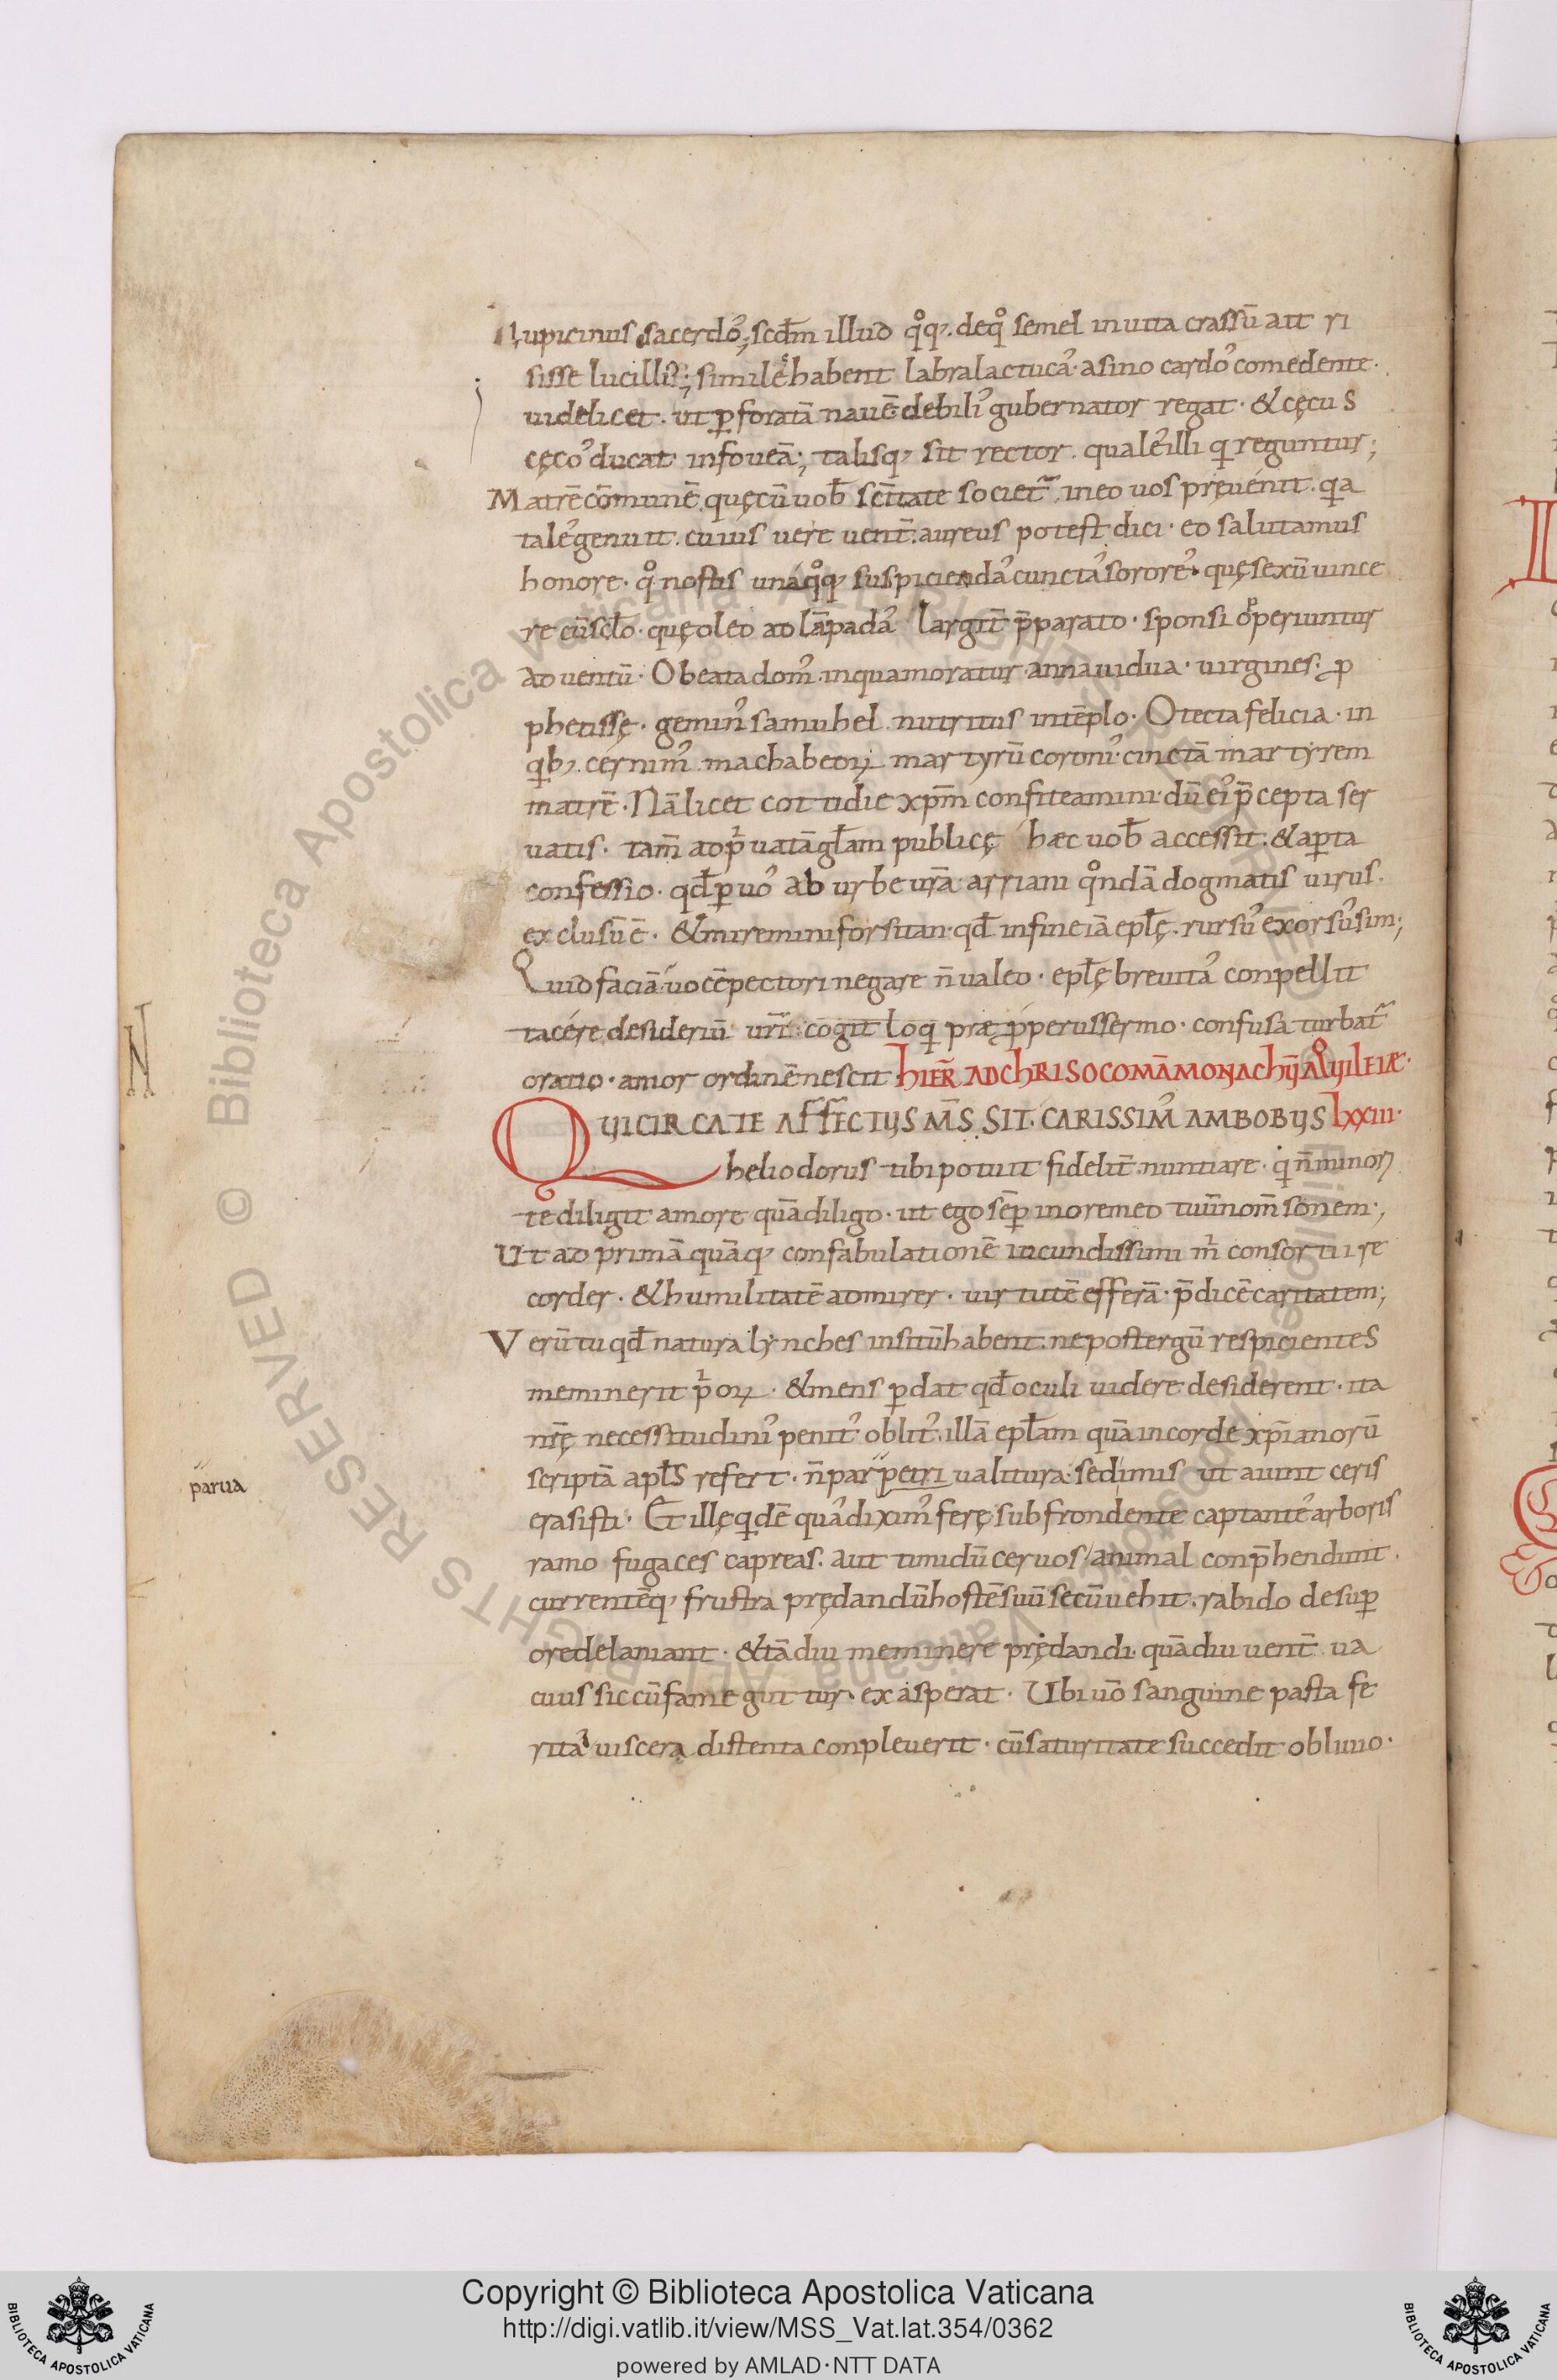 Lupicinus sacerdoˀ; scđm illud q̊q;. deq̊ semel inuita crassū ait ri
sisse lucilliˀ; similēˀ habent labra lactucāˀ asino cardoˀ comedente·
uidelicet· ut ꝑforatā nauē debiliˀ gubernator regat· & cęcuS
cęcoˀ ducat infoueā; talisq; sit rector· qualeˀ illi q̇ reguntur;
Matrē cōmunē quęcū uob̄ sc̄itate societ̃ in eo uos pręuénit· q̇a
taleˀ genuit· cuius uere uent̄ aureus potest dici· eo salutamus
honore· q̊ nostis unáq̊q; suspiciendaˀ cunctaˀ sororeˀ· quę sexū uince
re cū sc̄lo· quę oleo ad lāpadaˀ largit̄ p̄parato· sponsi opperiuntur
aduentū· O beata domˀ inqua moratur anna uidua· uirgines ꝓ
phetissę· geminˀ samuhel nutritus intēplo· O tecta felicia· in
q̇b; cérnimˀ machabeoꝝ martyrū coroniˀ cinctā martyrem
matrē· Nā licet cottidie xp̄m confiteamini dū eiˀ p̄cepta ser
uatis· tam̄ ad pͥuatā gl̄am publicę hæc uob̄ accessit· & aꝑta
confessio· qđ ꝑ uoˀ ab urbe ur̄a arriani q̊ndā dogmatis uirus·
exclusū ē· & miremini forsitan· qđ in fine iā epl̄ę· rursuˀ exorsuˀ sim;
Quid faciā uocē pectori negare n̄ ualeo· epl̄ę breuitaˀ conpellit
tacére desideriū ur̄i cogit loq̇ præꝓperus sermo· confusa turbat̃
oratio· amor ordinē nescit· hIER̄ AD ChRISOCOMĀ MONAChŪ AQ̊UILEIÆ·
QUI CIRCA TE AFFECTUS M̄S SIT· CARISSIMˀ AMBOBUS LXXIII·
heliodorus tibi potuit fidelit̄ nuntiare· q̇ n̄ minori
te diligit amore quā diligo· ut ego sēꝑ in ore meo tuū nom̄ sonem;
Ut ad primā quāq; confabulationē iucundissimi m̄i consortii re
corder· & humilitatē admirer· uirtutē efferā· p̄dicē caritatem;
Verū tu qđ natura lynches insitū habent· ne post ergū respicienteS
meminerit pͥoꝝ· & mens ꝑdat qđ oculi uidere desiderent· ita
nr̄ę necessitudiniˀ penitˀ oblitˀ illā epl̄am quā in corde xp̄ianorū
scriptā apl̄S refert· n̄ par petri ualitura sedimis ut aiunt ceris
parua
erasisti· Et illę q̇dē quaˀ diximˀ ferę sub frondente captanteˀ arboris
ramo fugaces capreas· aut timidū ceruos animal conp̄hendunt·
currentēq; frustra prędandū hostē suū secū uehit· rabido desuꝑ
ore delaniant· & tādiu meminere prędandi· quādiu uent̄ ua
cuus siccū fame guttur exasperat· Ubi uō sanguine pasta fe
ritaˀ uiscera distenta conpleuerit· cū saturitate succedit obliuio·
Copyright © Biblioteca Apostolica Vaticana
http://digi.vatlib.it/view/MSS_Vat.lat.354/0362
powered by AMLAD·NTT DATA